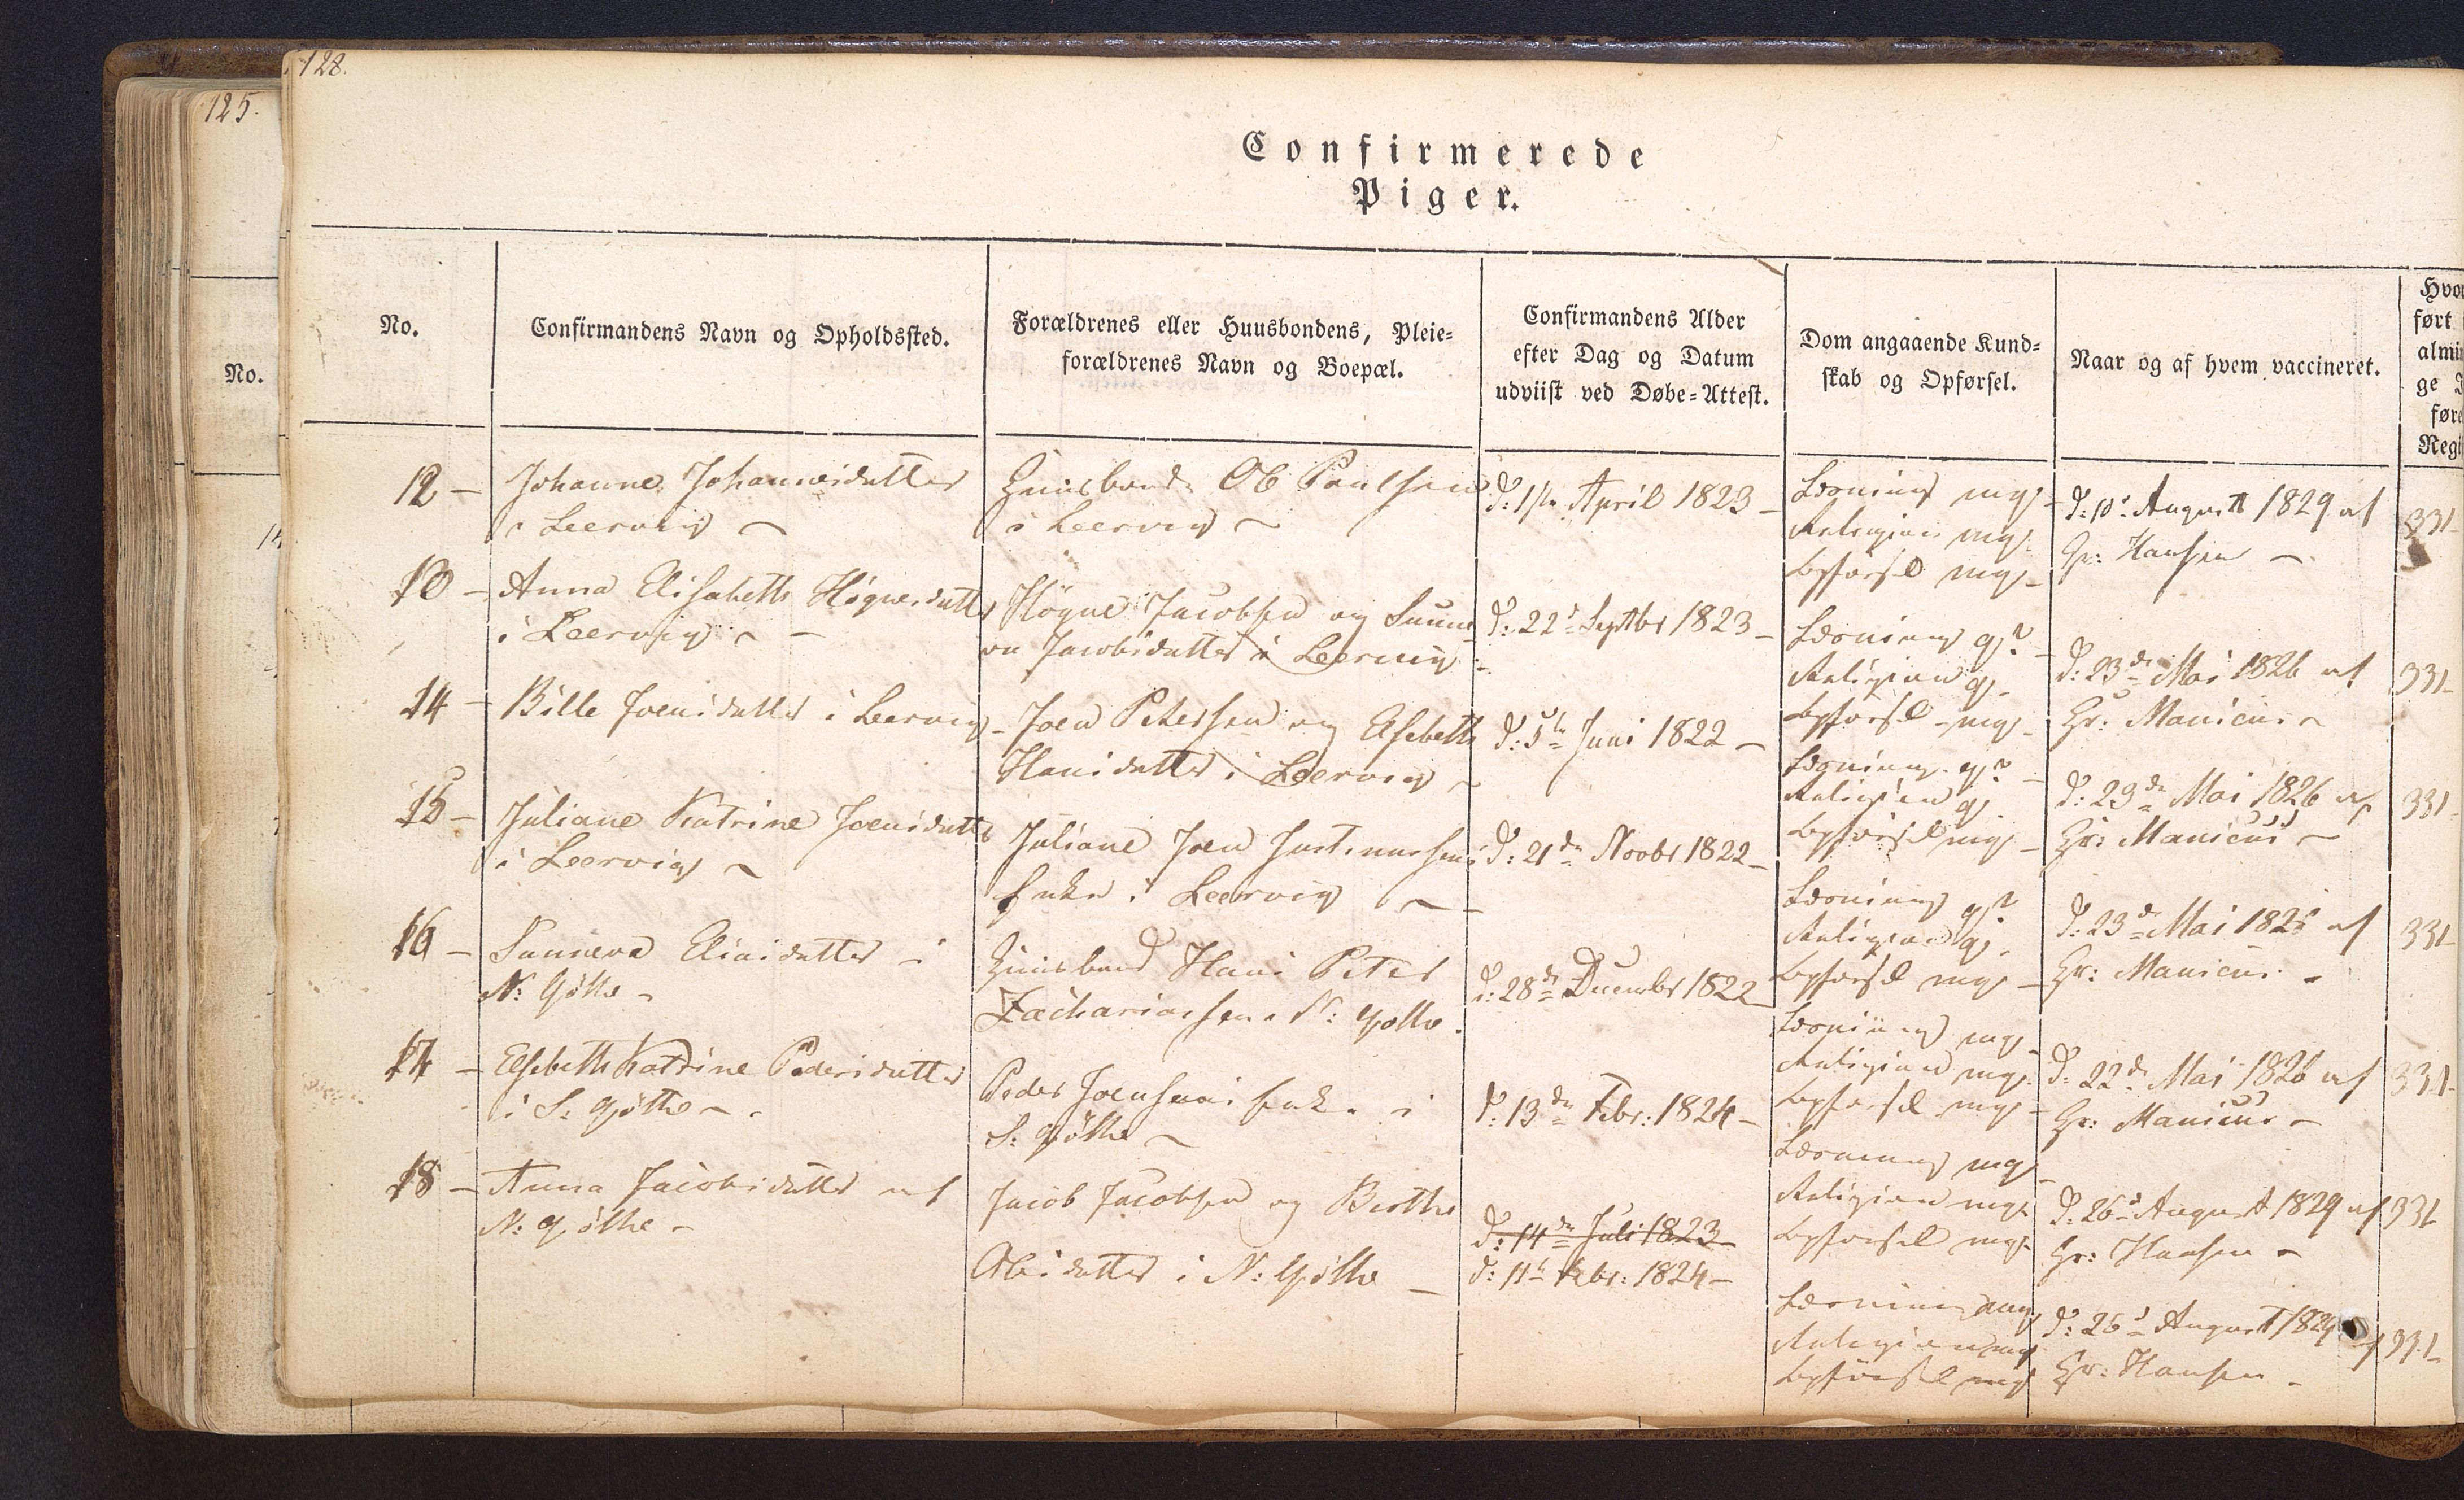 128.
125.
Confirmerede
Piger.
No.
No.
Confirmandens Navn og Opholdssted.
Forældrenes eller Huusbondens, Pleie=
forældrenes Navn og Boepæl.
Confirmandens Alder
efter Dag og Datum
udviist ved Døbe=Attest.
Dom angaaende Kund=
skab og Opførsel.
Naar og af hvem vaccineret.
ført
almi
ge
føre
Regi
12 -
Johanne Johannesdatter
i Leervig -
Huusbond Ole Poulsen
i Leervig -
d: 1ste April 1823 -
Læsning mg -
Religion mg -
Opførsel mg -
d: 10de August 1829 af
Hr: Hansen -
331-
- Anna Elisabeth Høgnesdatter
i Leervig -
Høgne Jacobsen og Sunne
va Jacobsdatter i Leervig -
d: 22de Septbr 1823 -
Læsning g? -
Religion g -
Opførsel mg -
d: 23de Mai 1826 af
Hr: Manicus -
331-
14 -
Bille Joensdatter i Leervig -
Joen Petersen og Elsebeth
Hansdatter i Leervig -
d: 5te Juni 1822 -
Læsning g? -
Religion g
Opførsel mg -
d: 23de Mai 1826 af
Hr: Manicus -
331-
15 -
Juliane Katrine Joensdatter
i Leervig -
Juliane Joen Justinussens
Enke i Leervig -
d: 21de Novbr 1822 -
Læsning g?
Religion g -
Opførsel mg -
d: 23de Mai 1826 af
Hr: Manicus -
331-
16 -
Sunneva Eliasdatter i
N: Gøthe -
Huusbond Hans Peter
Zachariassen N: Gøthe.
d: 28de Decembr 1822 -
Læsning mg -
Religion mg -
Opførsel mg -
d: 22de Mai 1826 af
Hr: Manicus -
331-
17 -
Elsebeth Katrine Pedersdatter
i S: Gøthe -
Peder Joensens Enke i
S: Gøthe -
d: 13de Febr: 1824 -
Læsning mg -
Religion mg
Opførsel mg
d: 26de August 1829 af
Hr: Hansen -
331
18 -
Anna Jacobsdatter af
N: Gøthe -
Jacob Jacobsen og Birthe
Olesdatter i N: Gøthe -
d: 14de Juli 1823 -
d: 11te Febr: 1824 -
Læsning mg
Religion mg
Opførsel mg
d: 26de August 1829 af
Hr: Hansen -
331-